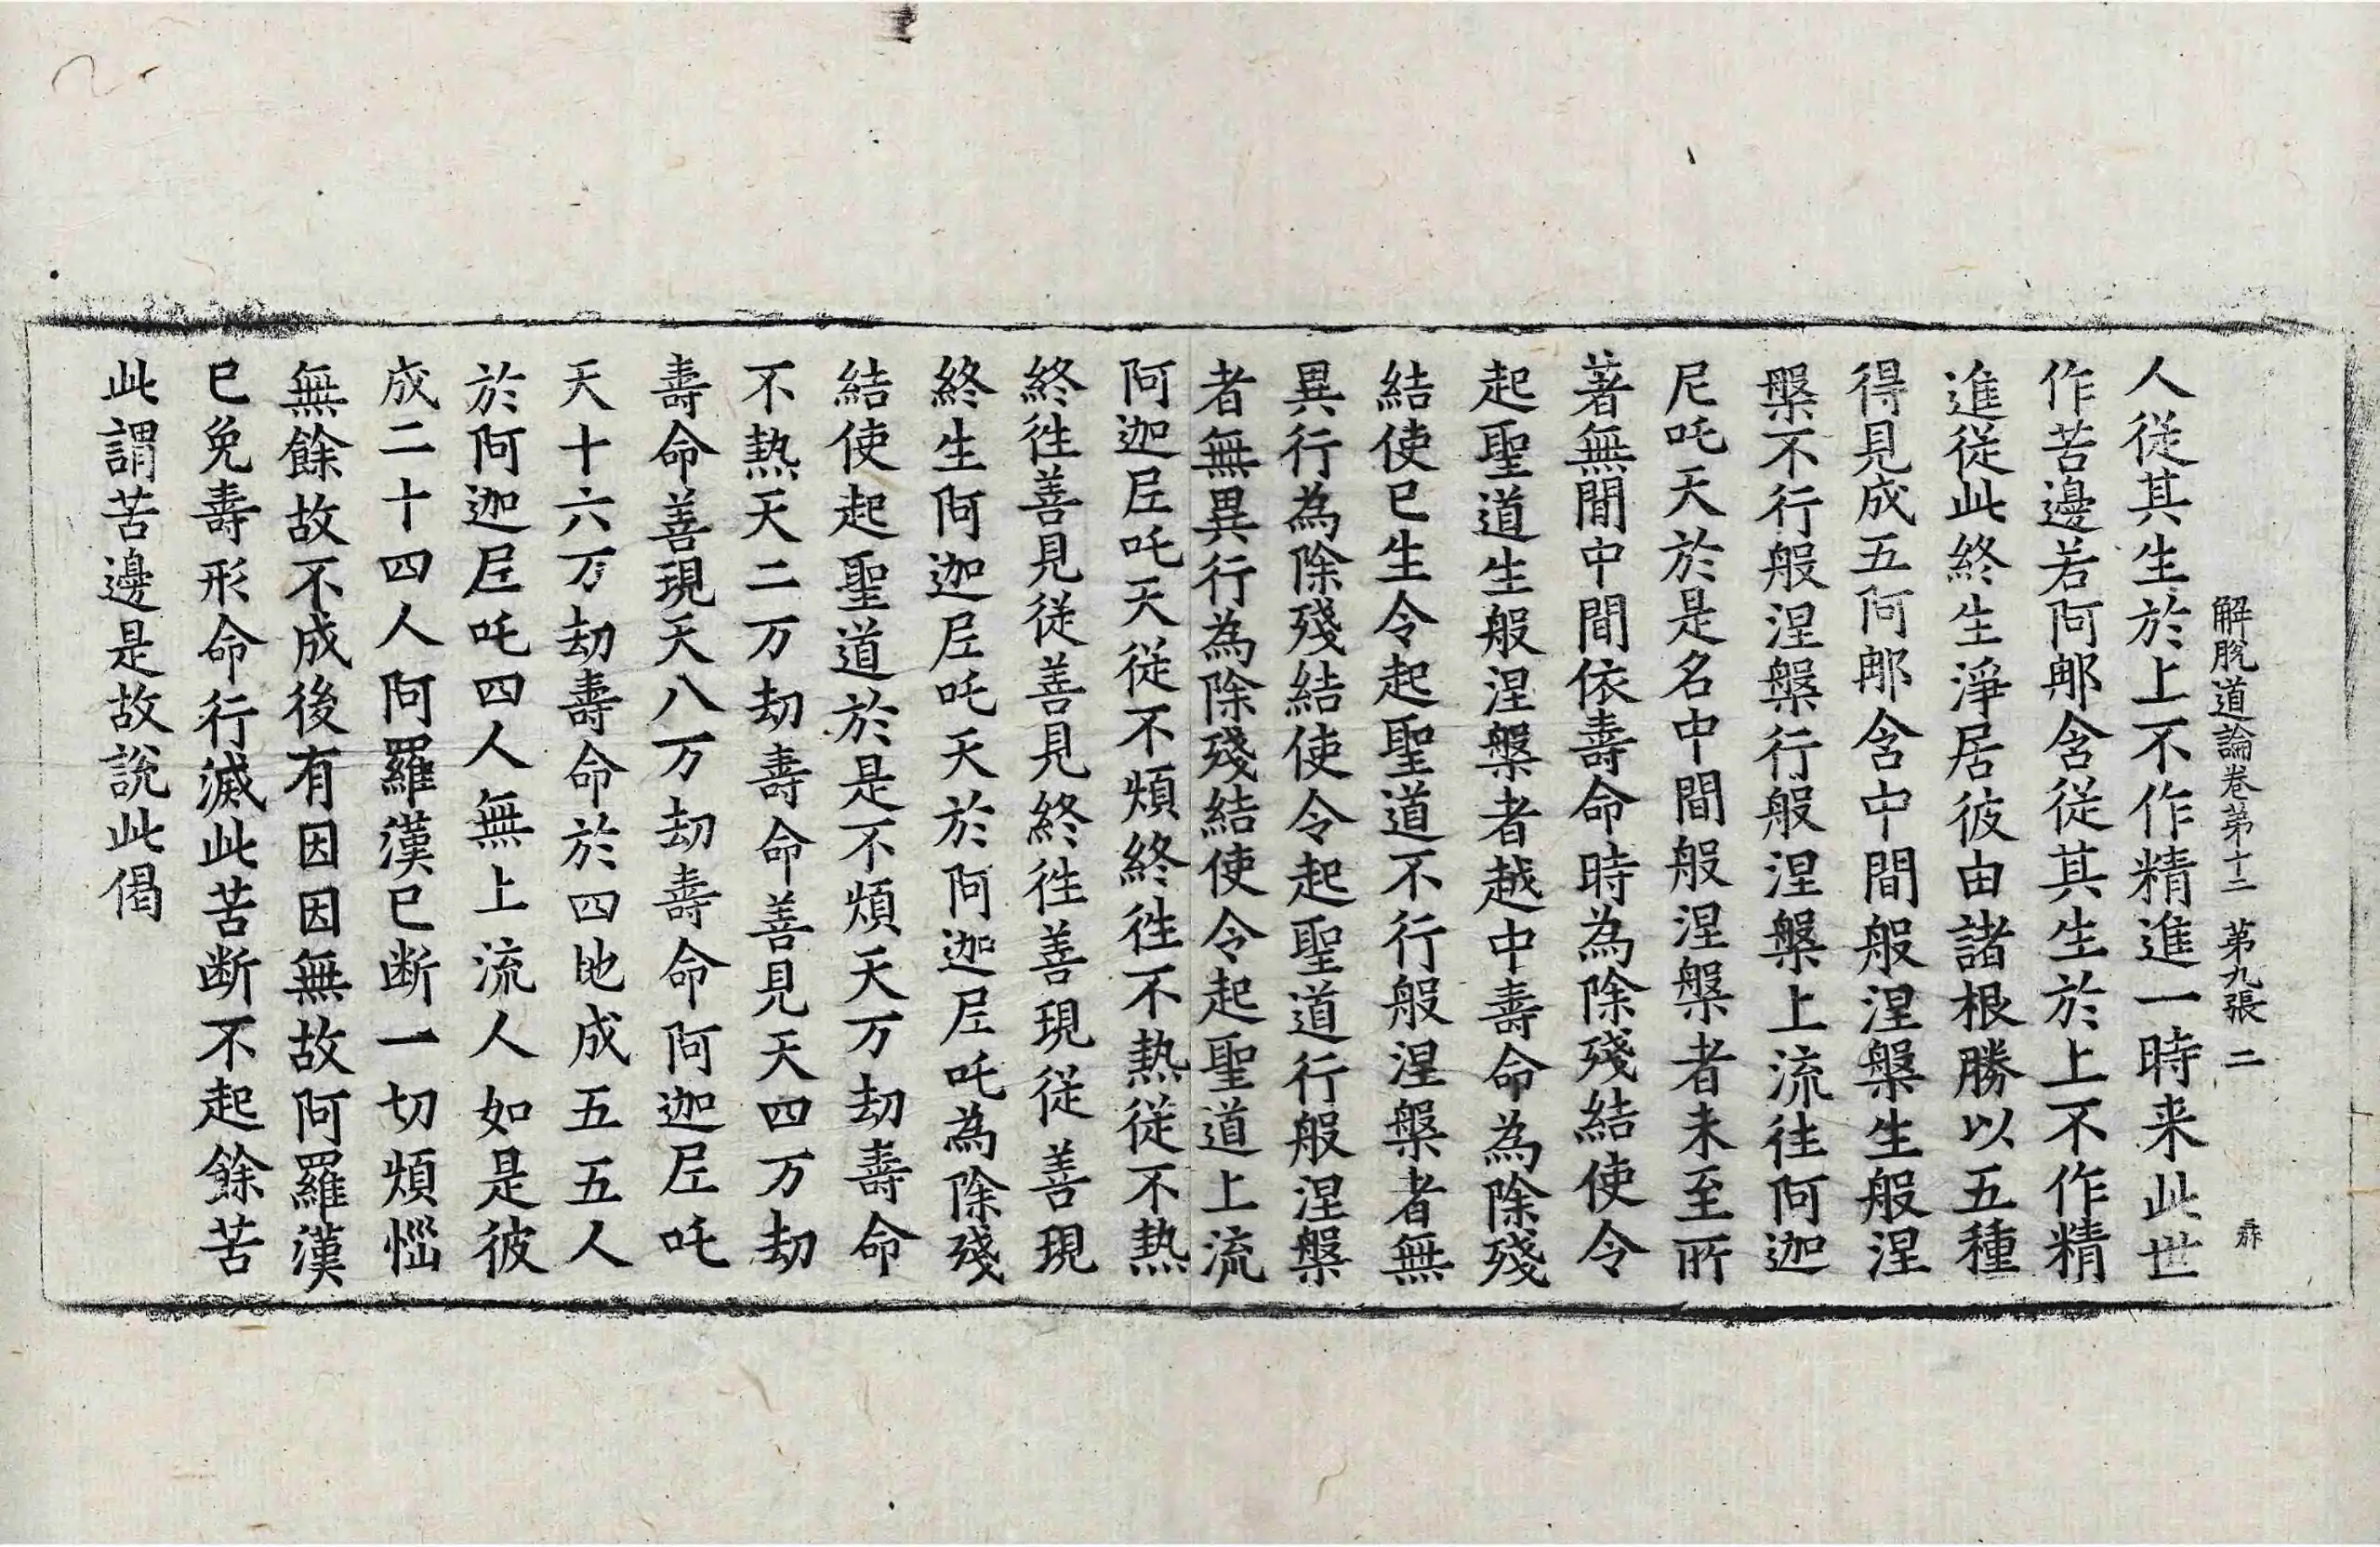 解脫道論卷第十二 第九張 二
人從其生於上不作精進一時来此世
作苦邊若阿那含從其生於上不作精
進從此終生淨居彼由諸根勝以五種
得見成五阿那含中間般涅槃生般涅
槃不行般涅槃行般涅槃上流往阿迦
尼吒天於是名中間般涅槃者未至所
著無間中間依壽命時為除殘結使令
起聖道生般涅槃者越中壽命為除殘
結使已生令起聖道不行般涅槃者無
異行為除殘結使令起聖道行般涅槃
者無異行為除殘結使令起聖道上流
阿迦尼吒天從不煩終往不熱從不熱
終往善見從善見終往善現從善現
終生阿迦尼吒天於阿迦尼吒為除殘
結使起聖道於是不煩天万劫壽命
不熱天二万劫壽命善見天四万劫
壽命善現天八万劫壽命阿迦尼吒
天十六万劫壽命於四地成五五人
於阿迦尼吒四人無上流人如是彼
成二十四人阿羅漢已断一切煩惱
無餘故不成後有因因無故阿羅漢
已免壽形命行滅此苦断不起餘苦
此謂苦邊是故說此偈